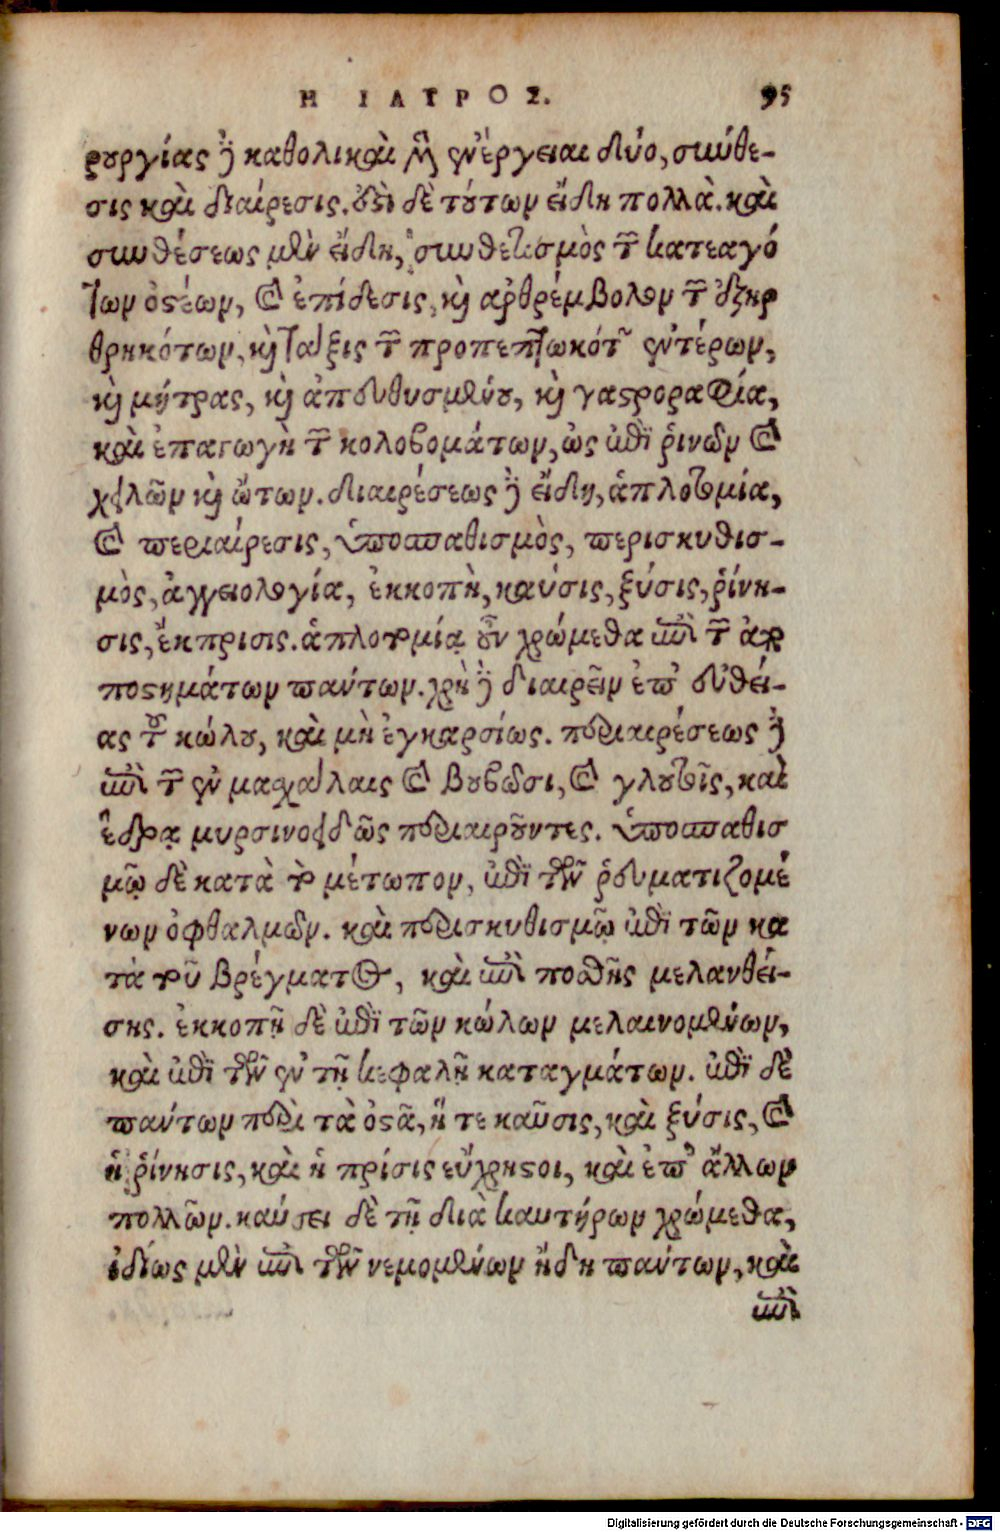 Η ΙΑΤΡΟΣ. 95
ρουργίας δὲ καθολικαὶ μὲν ἐνέργειαι δύο, σύνθε-
σις καὶ διαίρεσις. εἰσὶ δὲ τούτων εἴδη πολλὰ. καὶ
συνθέσεως μὲν εἴδη, συνθετισμὸς τῶν κατεαγό
των ὀστέων, καὶ ἐπίδεσις, καὶ ἀρθρέμβολον τῶν ἐξηρ
θρηκότων, καὶ τάξις τῶν προπεπτωκότων ἐντέρων,
καὶ μήτρας, καὶ ἀπευθυσμένου, καὶ γαστροραφία,
καὶ ἐπαγωγὴ τῶν κολοβομάτων, ὡς ἐπὶ ῥινῶν καὶ
χειλῶν καὶ ὤτων. διαιρέσεως δὲ εἴδη, ἁπλοτομία,
καὶ περιαίρεσις, ὑποσπαθισμὸς, περισκυθισ-
μὸς, ἀγγειολογία, ἐκκοπὴ, καύσις, ξύσις, ῥίνη-
σις, ἔκπρισις. ἁπλοτομίᾳ οὖν χρώμεθα ἐπὶ τῶν ἀ
ποστημάτων πάντων. χρὴ δὲ διαιρεῖν ἐπ' εὐθεί-
ας τοῦ κώλου, καὶ μὴ ἐγκαρσίως. περιαιρέσεως δὲ
ἐπὶ τῶν ἐν μασχάλαις καὶ βουβῶσι, καὶ γλουτοῖς, καὶ
ἕδρᾳ μυρσινοειδῶς περιαιροῦντες. ὑποσπαθισ
μῷ δὲ κατὰ τὸ μέτωπον, ἐπὶ τῶν ῥευματιζομέ
νων ὀφθαλμῶν. καὶ περισκυθισμῷ ἐπὶ τῶν κα
τὰ τοῦ βρέγματος, καὶ ἐπὶ ποσθῆς μελανθεί-
σης. ἐκκοπῇ δὲ ἐπὶ τῶν κώλων μελαινομένων,
καὶ ἐπὶ τῶν ἐν τῇ κεφαλῇ καταγμάτων. ἐπὶ δὲ
πάντων περὶ τὰ ὀστᾶ, ἥ τε καῦσις, καὶ ξύσις, καὶ
ἡ ῥίνησις, καὶ ἡ πρίσις εὔχρηστοι, καὶ ἐπ' ἄλλων
πολλῶν. καύσει δὲ τῇ διὰ καυτήρων χρώμεθα,
ἰδίως μὲν ἐπὶ τῶν νεμομένων ἤδη πάντων, καὶ
ἐπὶ
Digitalisierung gefördert durch die Deutsche Forschungsgemeinschaft - DFG